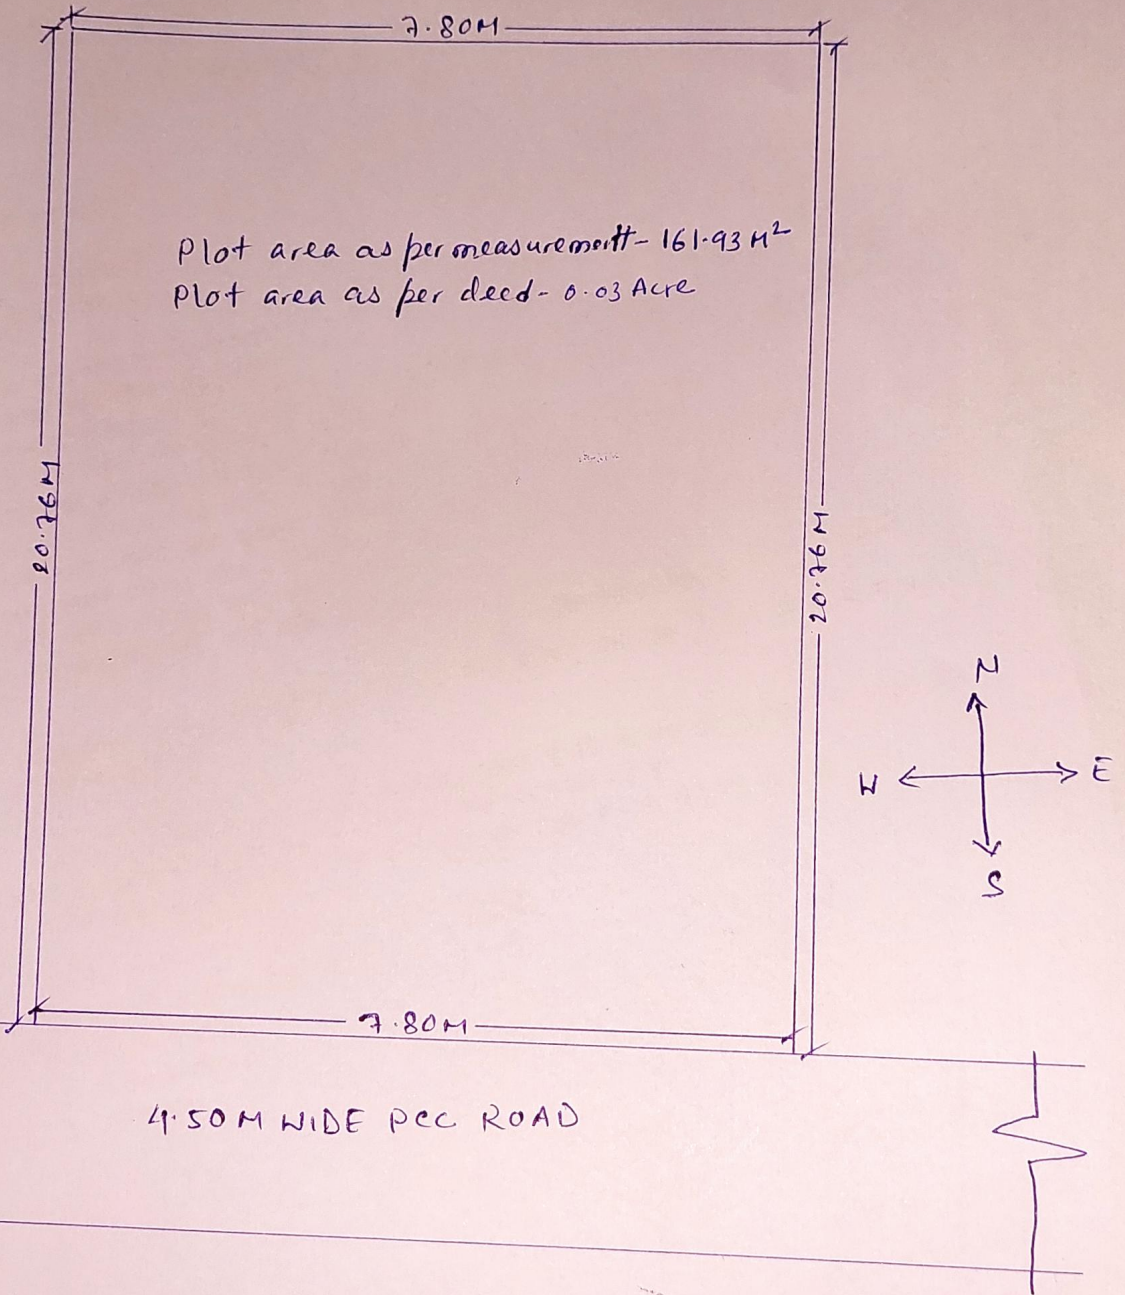 7.80M
Plot area as per measurement- 161.93 M²
Plot area as per deed- 0.03 Acre
20.76M
20.76 M
N
W
E
S
7.80M
4.50 M WIDE PCC ROAD